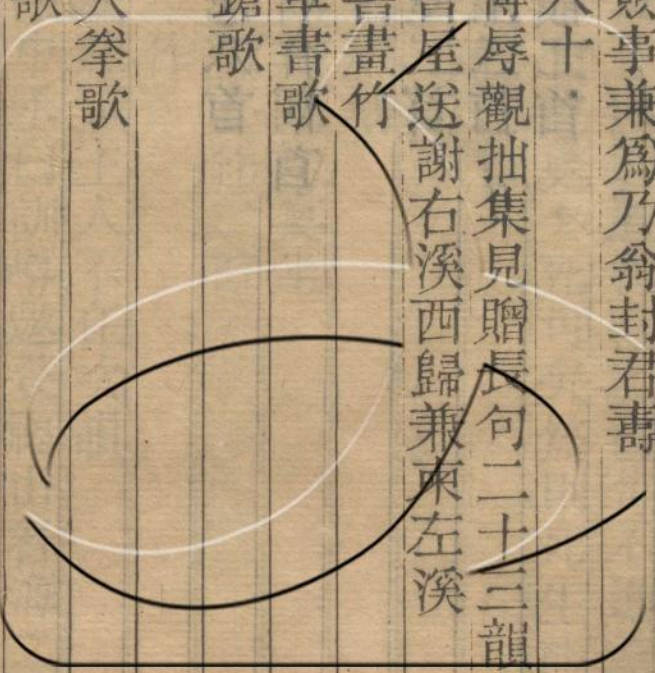 事兼爲乃翁封君壽
八十
辱觀拙集見贈長句二十三韻
屋送謝右溪西歸兼柬左溪
畫竹
草書歌
蹌歌
人拳歌
歌